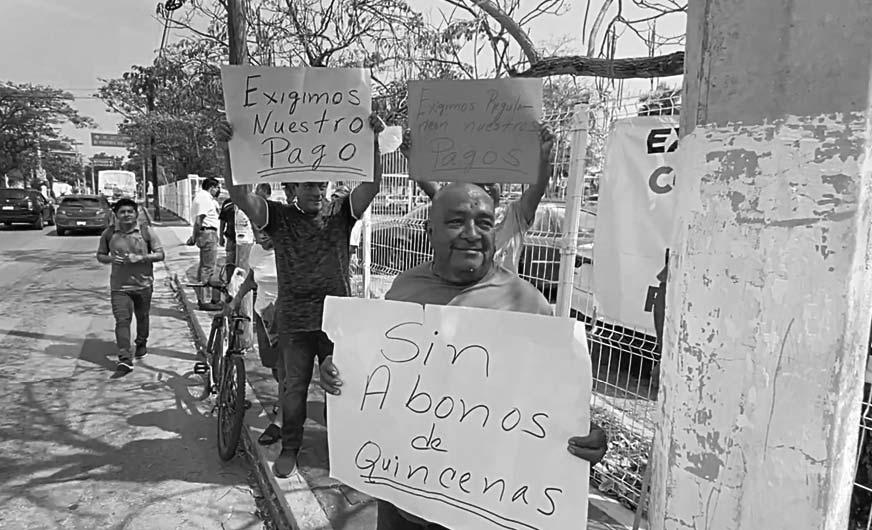 Exigimos
Nuestro
Pago
Exigimos Regula-
nuestros
Pagos
Sin
Abonos
de
Quincenas